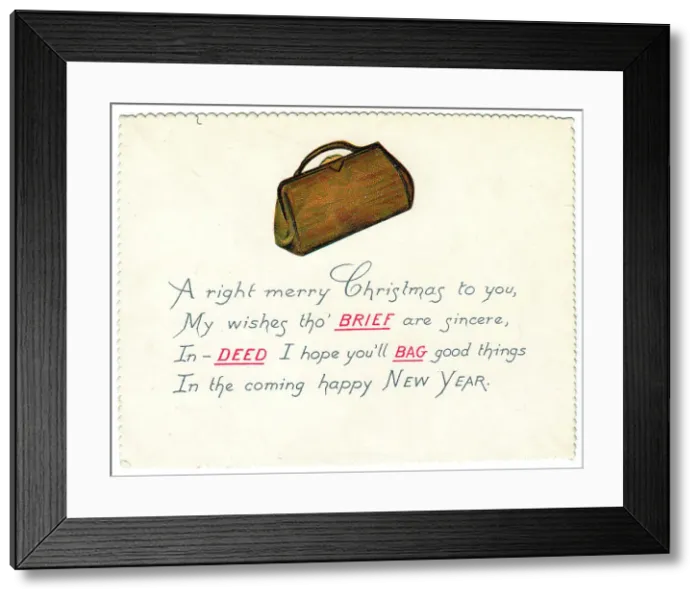 A right merry Christmas to you,
My wishes tho' BRIEF are sincere,
In-DEED I hope you'll BAG good things
In the coming happy NEW YEAR.